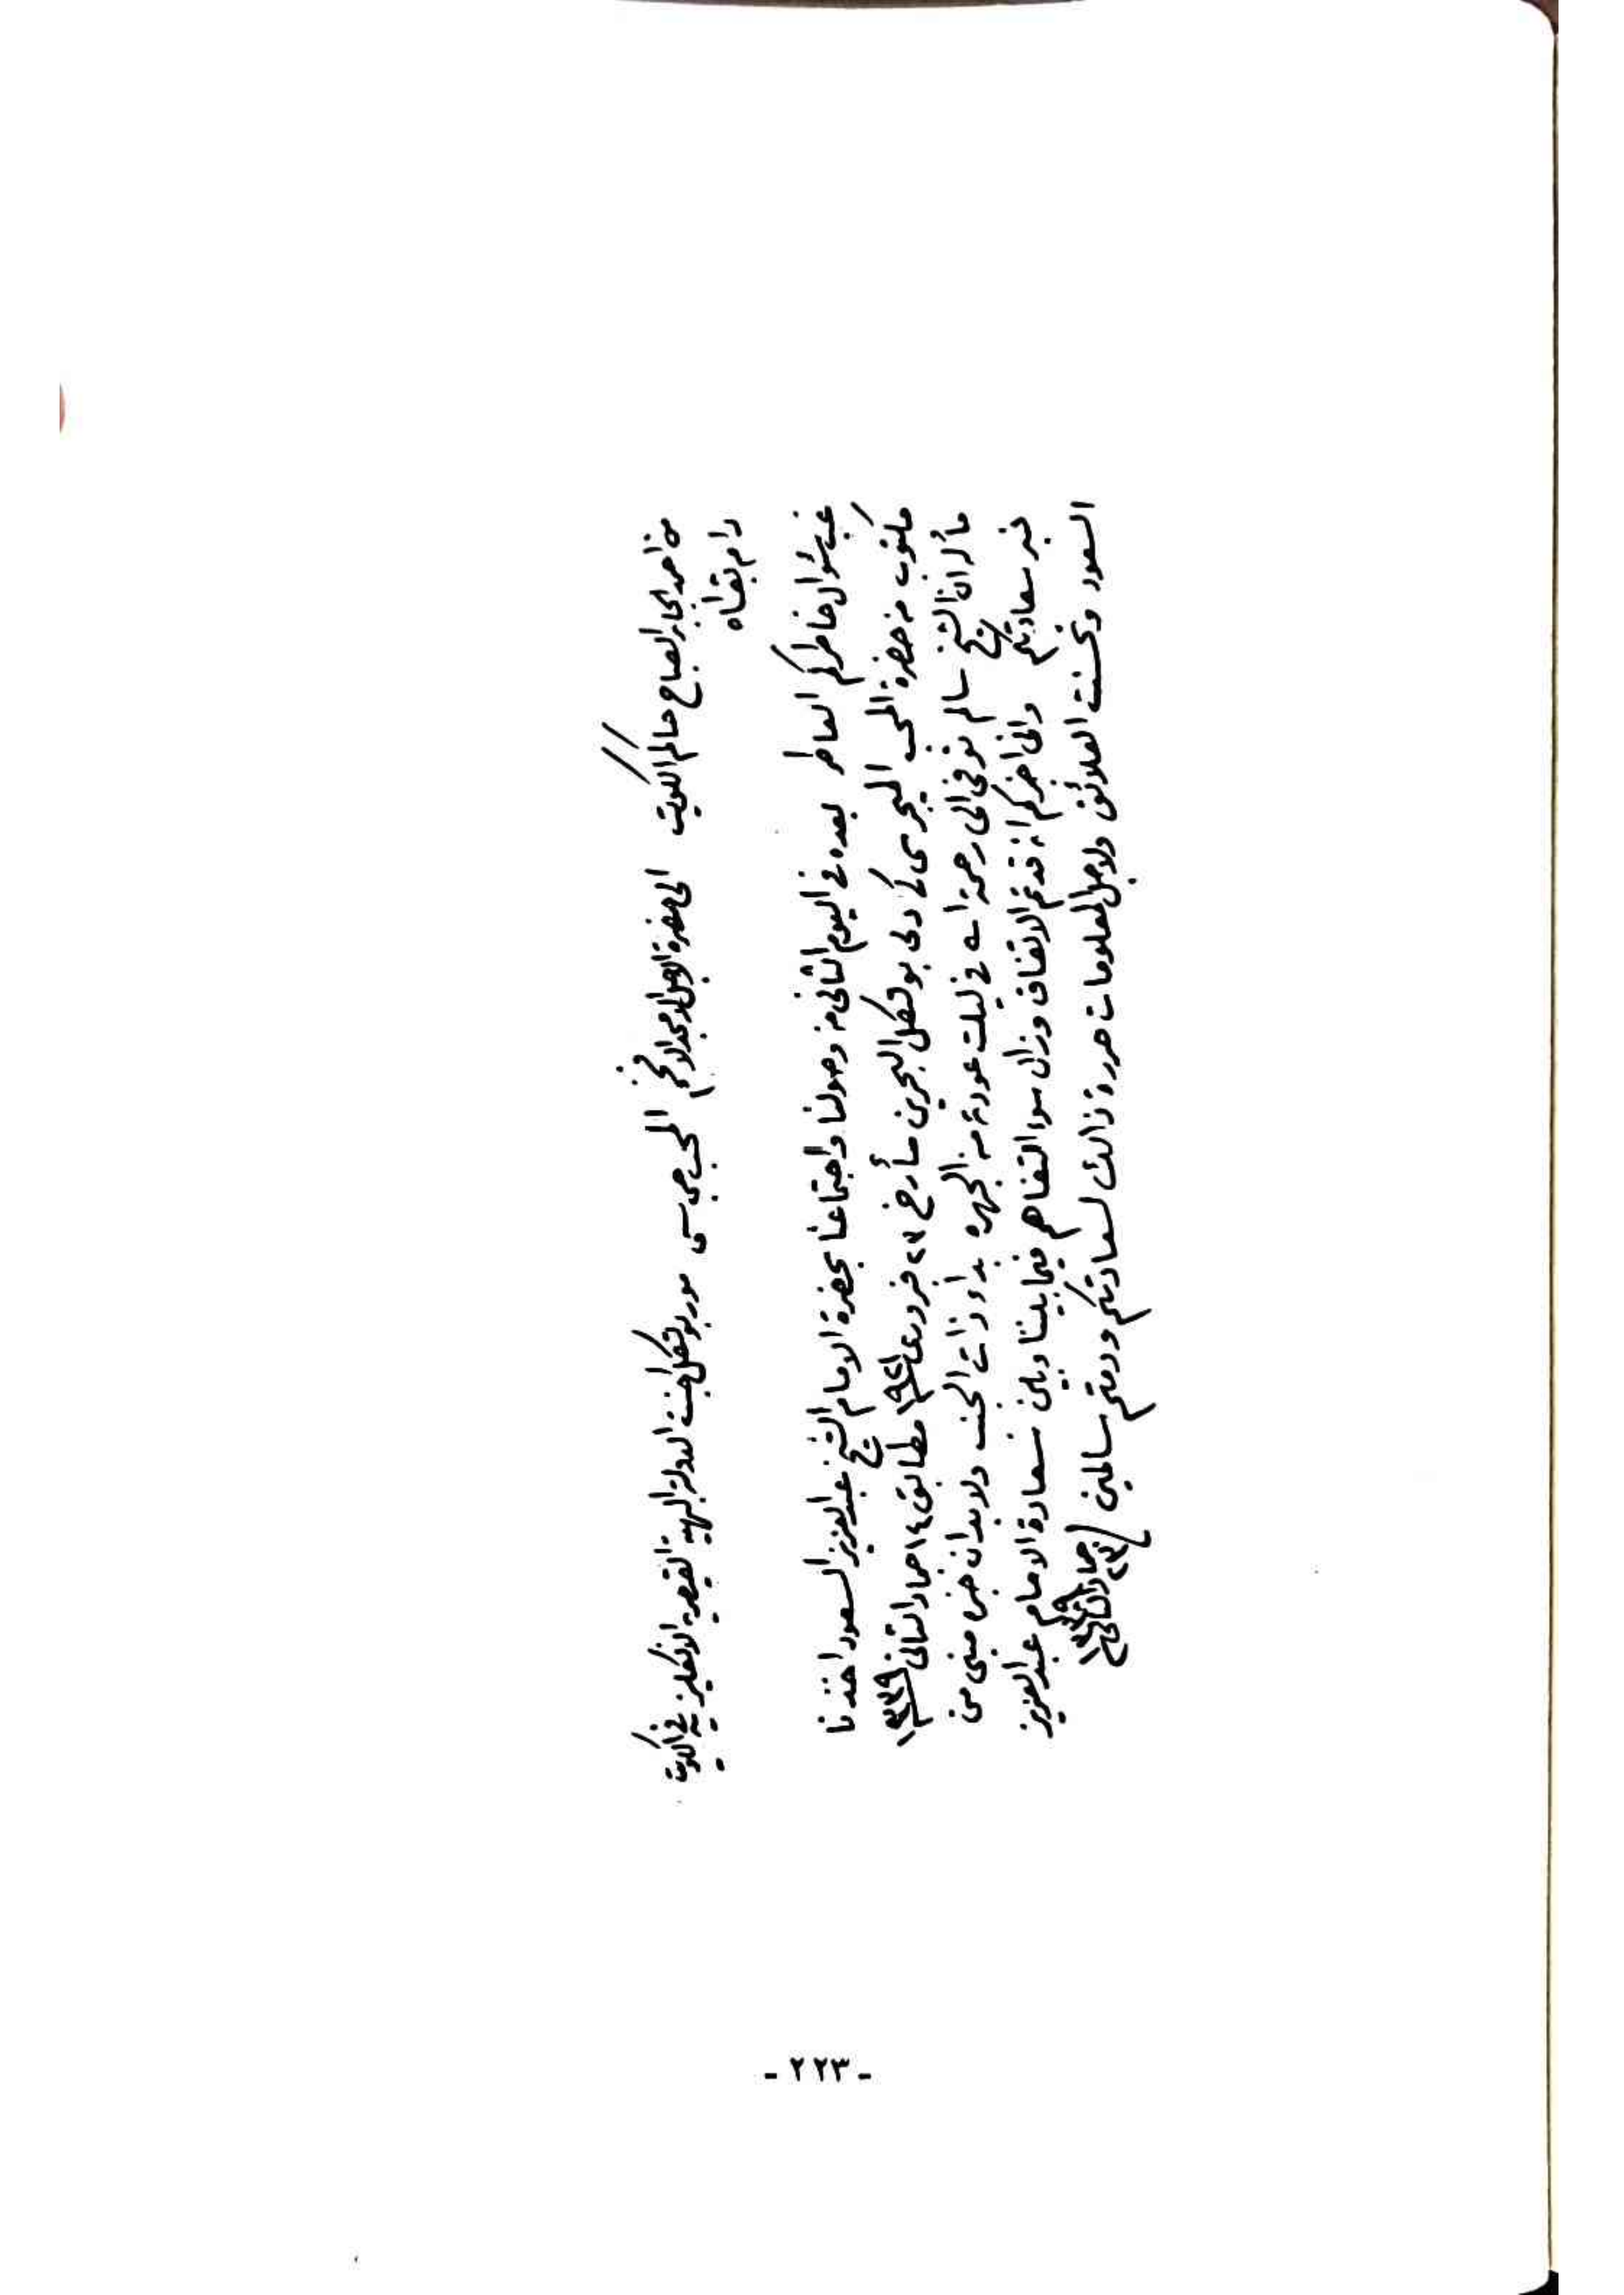 من احمد الجابر الصباح حاكم الكويت الى حضرة الاجل الامجد الافخم المحب جي سي مور بولتكل اجنت الدولة البهية القيصرية الانكليزية في الكويت
دام بقاه
غب سؤال خاطركم العاطر بعده في اليوم الثاني من وصولنا واجتماعنا بحضرة الامام الشيخ عبدالعزيز السعود اخذنا
مكتوب من حضرة المحب الميجر سي كى دلى بولتكل البحرين مأرخ ٢٢ فبروري ١٩٢١ مطابق ١٤ جماد الثاني ١٣٣٩
مأله ان الشيخ سالم توفى الى رحمة الله في ليلت عودته من الجهره بداء ذات الجنب ولابد ان خبره مبني من
خبر سعادتكم وانى اخبركم انه قد تم الاتفاق وزال سوء التفاهم فيما بيننا وبين سعادة الامام عبدالعزيز
السعود وتحسنت العلائق ولاجل المعلومات حررة ذالك لسعادتكم ودمتم سالمين
جماد الثاني
١٣٣٩
- ٢٢٣ -